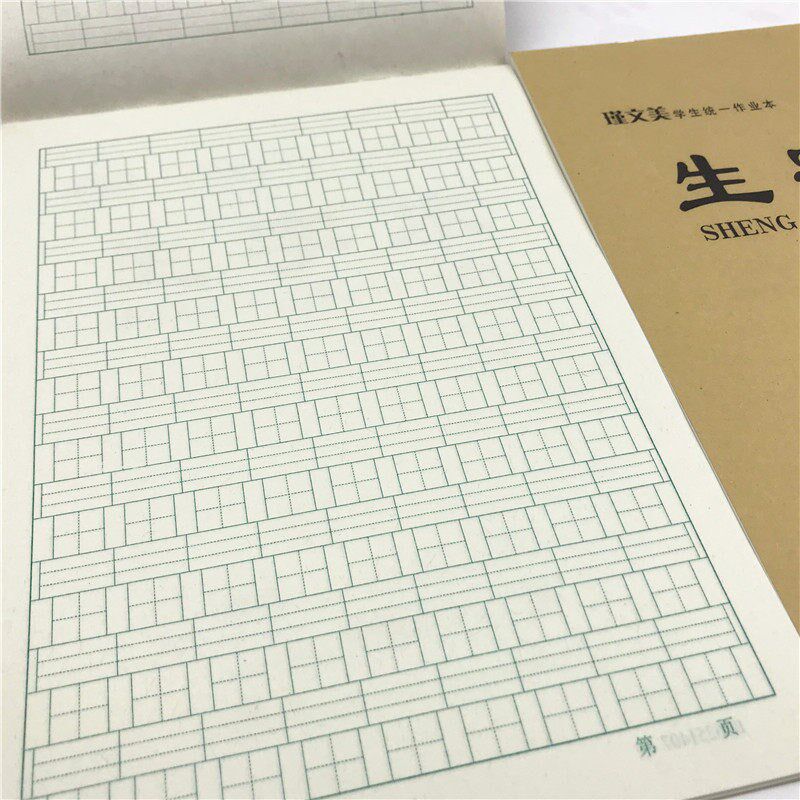 瑾文美学生统一作业本
生
SHENG
第 页